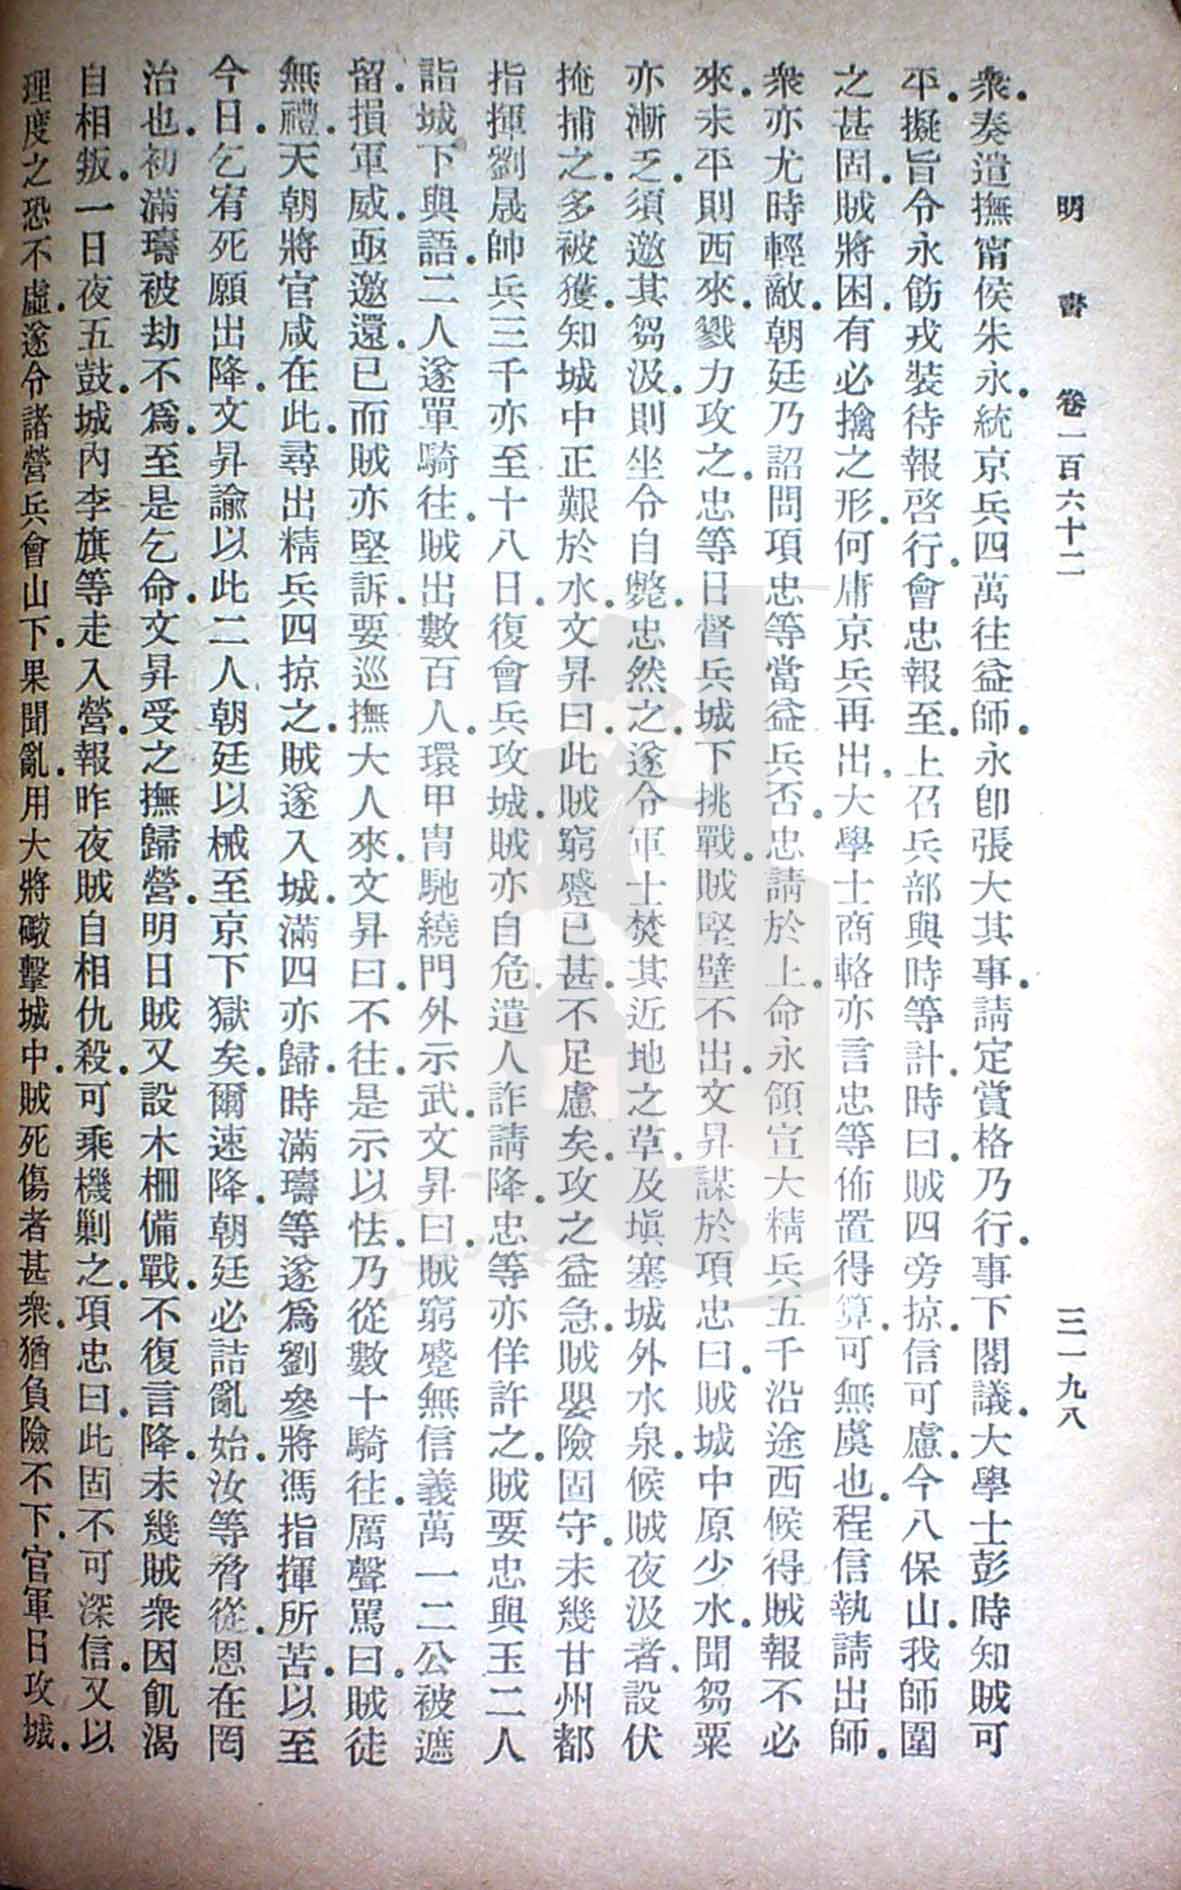 明書 卷一百六十二 三一九八
衆。奏遣撫甯侯朱永。統京兵四萬往益師。永卽張大其事。請定賞格乃行。事下閣議。大學士彭時知賊可
平。擬旨令永飭戎裝待報啓行。會忠報至。上召兵部與時等計。時曰。賊四旁掠。信可慮。今入保山。我師圍
之甚固。賊將困。有必擒之形。何庸京兵再出。大學士商輅亦言忠等佈置得算。可無虞也。程信執請出師。
衆亦尤時輕敵。朝廷乃詔問項忠等當益兵否。忠請於上。命永領宣大精兵五千沿途西候得賊報不必
來。未平則西來。戮力攻之。忠等日督兵城下挑戰。賊堅壁不出。文昇謀於項忠曰。賊城中原少水。聞芻粟
亦漸乏。須邀其芻汲。則坐令自斃。忠然之。遂令軍士焚其近地之草。及塡塞城外水泉。候賊夜汲者。設伏
掩捕之。多被獲。知城中正艱於水。文昇曰。此賊窮蹙已甚。不足慮矣。攻之益急。賊嬰險固守。未幾甘州都
指揮劉晟帥兵三千亦至。十八日。復會兵攻城。賊亦自危。遣人詐請降。忠等亦佯許之。賊要忠與玉二人
詣城下與語。二人遂單騎往。賊出數百人。環甲冑馳繞門外示武。文昇曰。賊窮蹙無信義。萬一二公被遮
留。損軍威。亟邀還。已而賊亦堅訴。要巡撫大人來。文昇曰。不往。是示以怯。乃從數十騎往。厲聲罵曰。賊徒
無禮。天朝將官咸在此。尋出精兵四掠之。賊遂入城。滿四亦歸。時滿璹等遂爲劉參將馮指揮所苦。以至
今日。乞宥死願出降。文昇諭以此二人。朝廷以械至京下獄矣。爾速降。朝廷必詰亂始。汝等脅從。恩在罔
治也。初滿璹被劫不爲。至是乞命。文昇受之撫歸營。明日賊又設木柵備戰。不復言降。未幾賊衆因飢渴
自相叛。一日夜五鼓。城內李旗等走入營。報昨夜賊自相仇殺。可乘機剿之。項忠曰。此固不可深信。又以
理度之恐不虛。遂令諸營兵會山下。果聞亂。用大將礮擊城中。賊死傷者甚衆。猶負險不下。官軍日攻城。